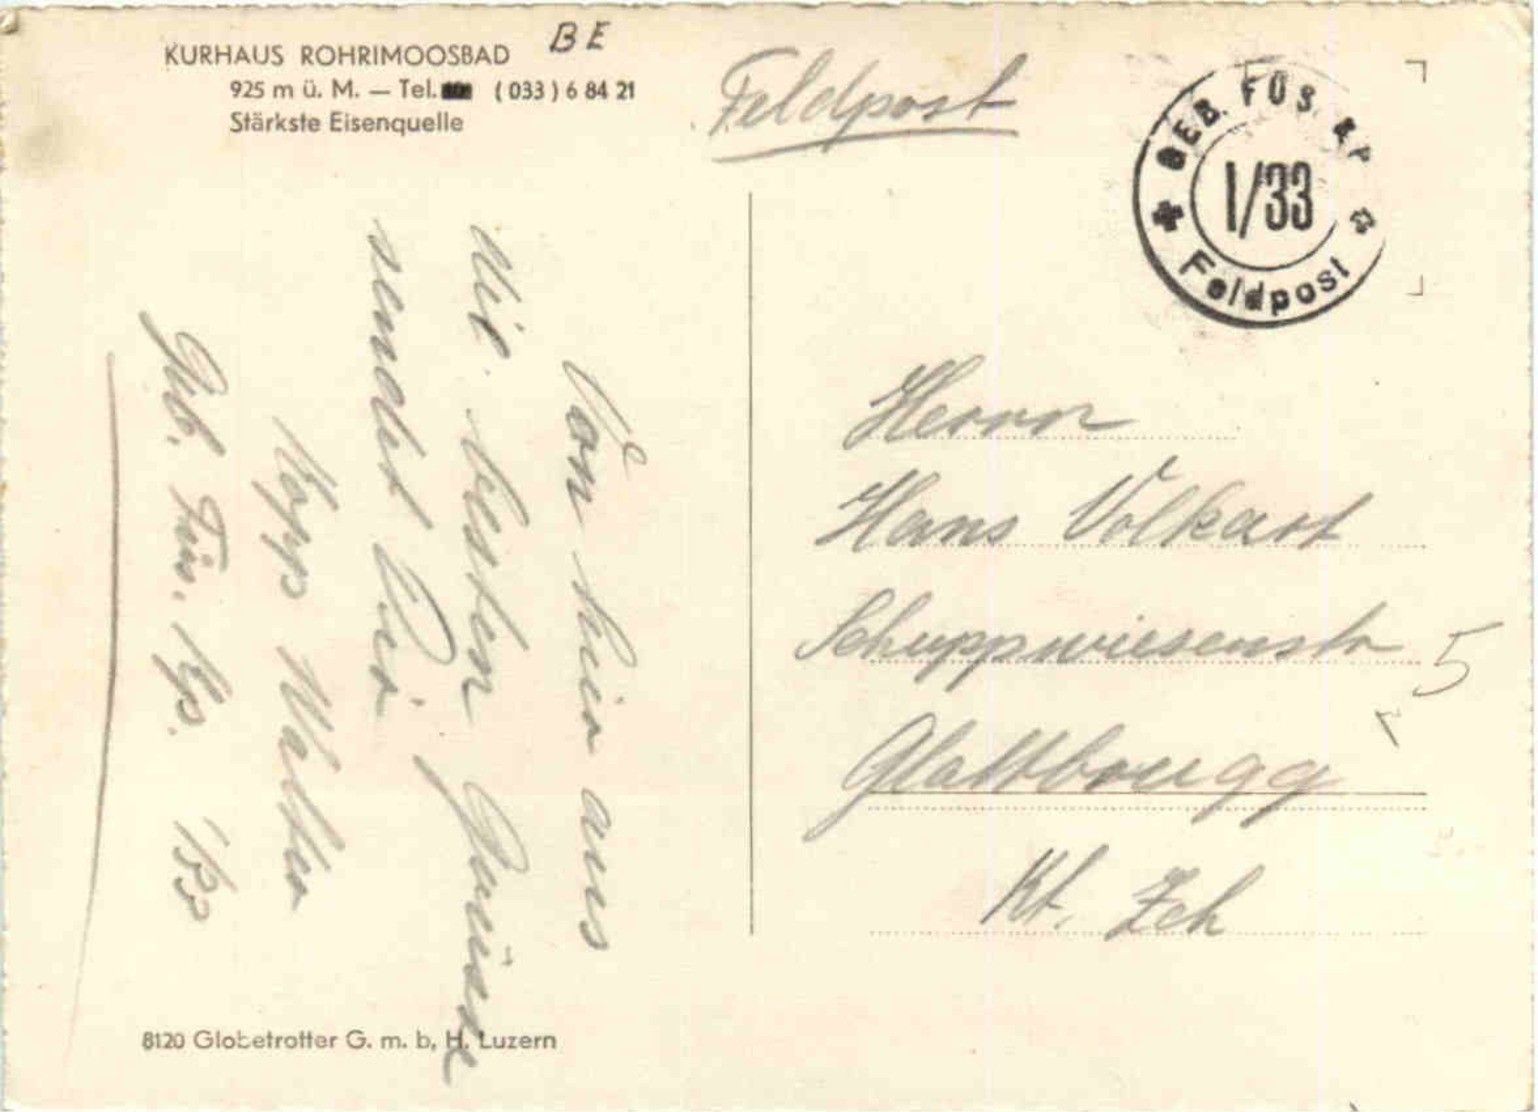 KURHAUS ROHRIMOOSBAD
BE
925 m ü. M. — Tel. (033) 6 84 21
Stärkste Eisenquelle
Feldpost
GEB. FÜS. KP.
I/33
Feldpost
Von hier aus
die besten Grüsse
sendet Dir
Kopp Walter
Geb. Füs. Kp. I/33
Herrn
Hans Volkart
Schuppwiesenstr 5
Glattbrugg
Kt. Zch
8120 Globetrotter G. m. b. H. Luzern